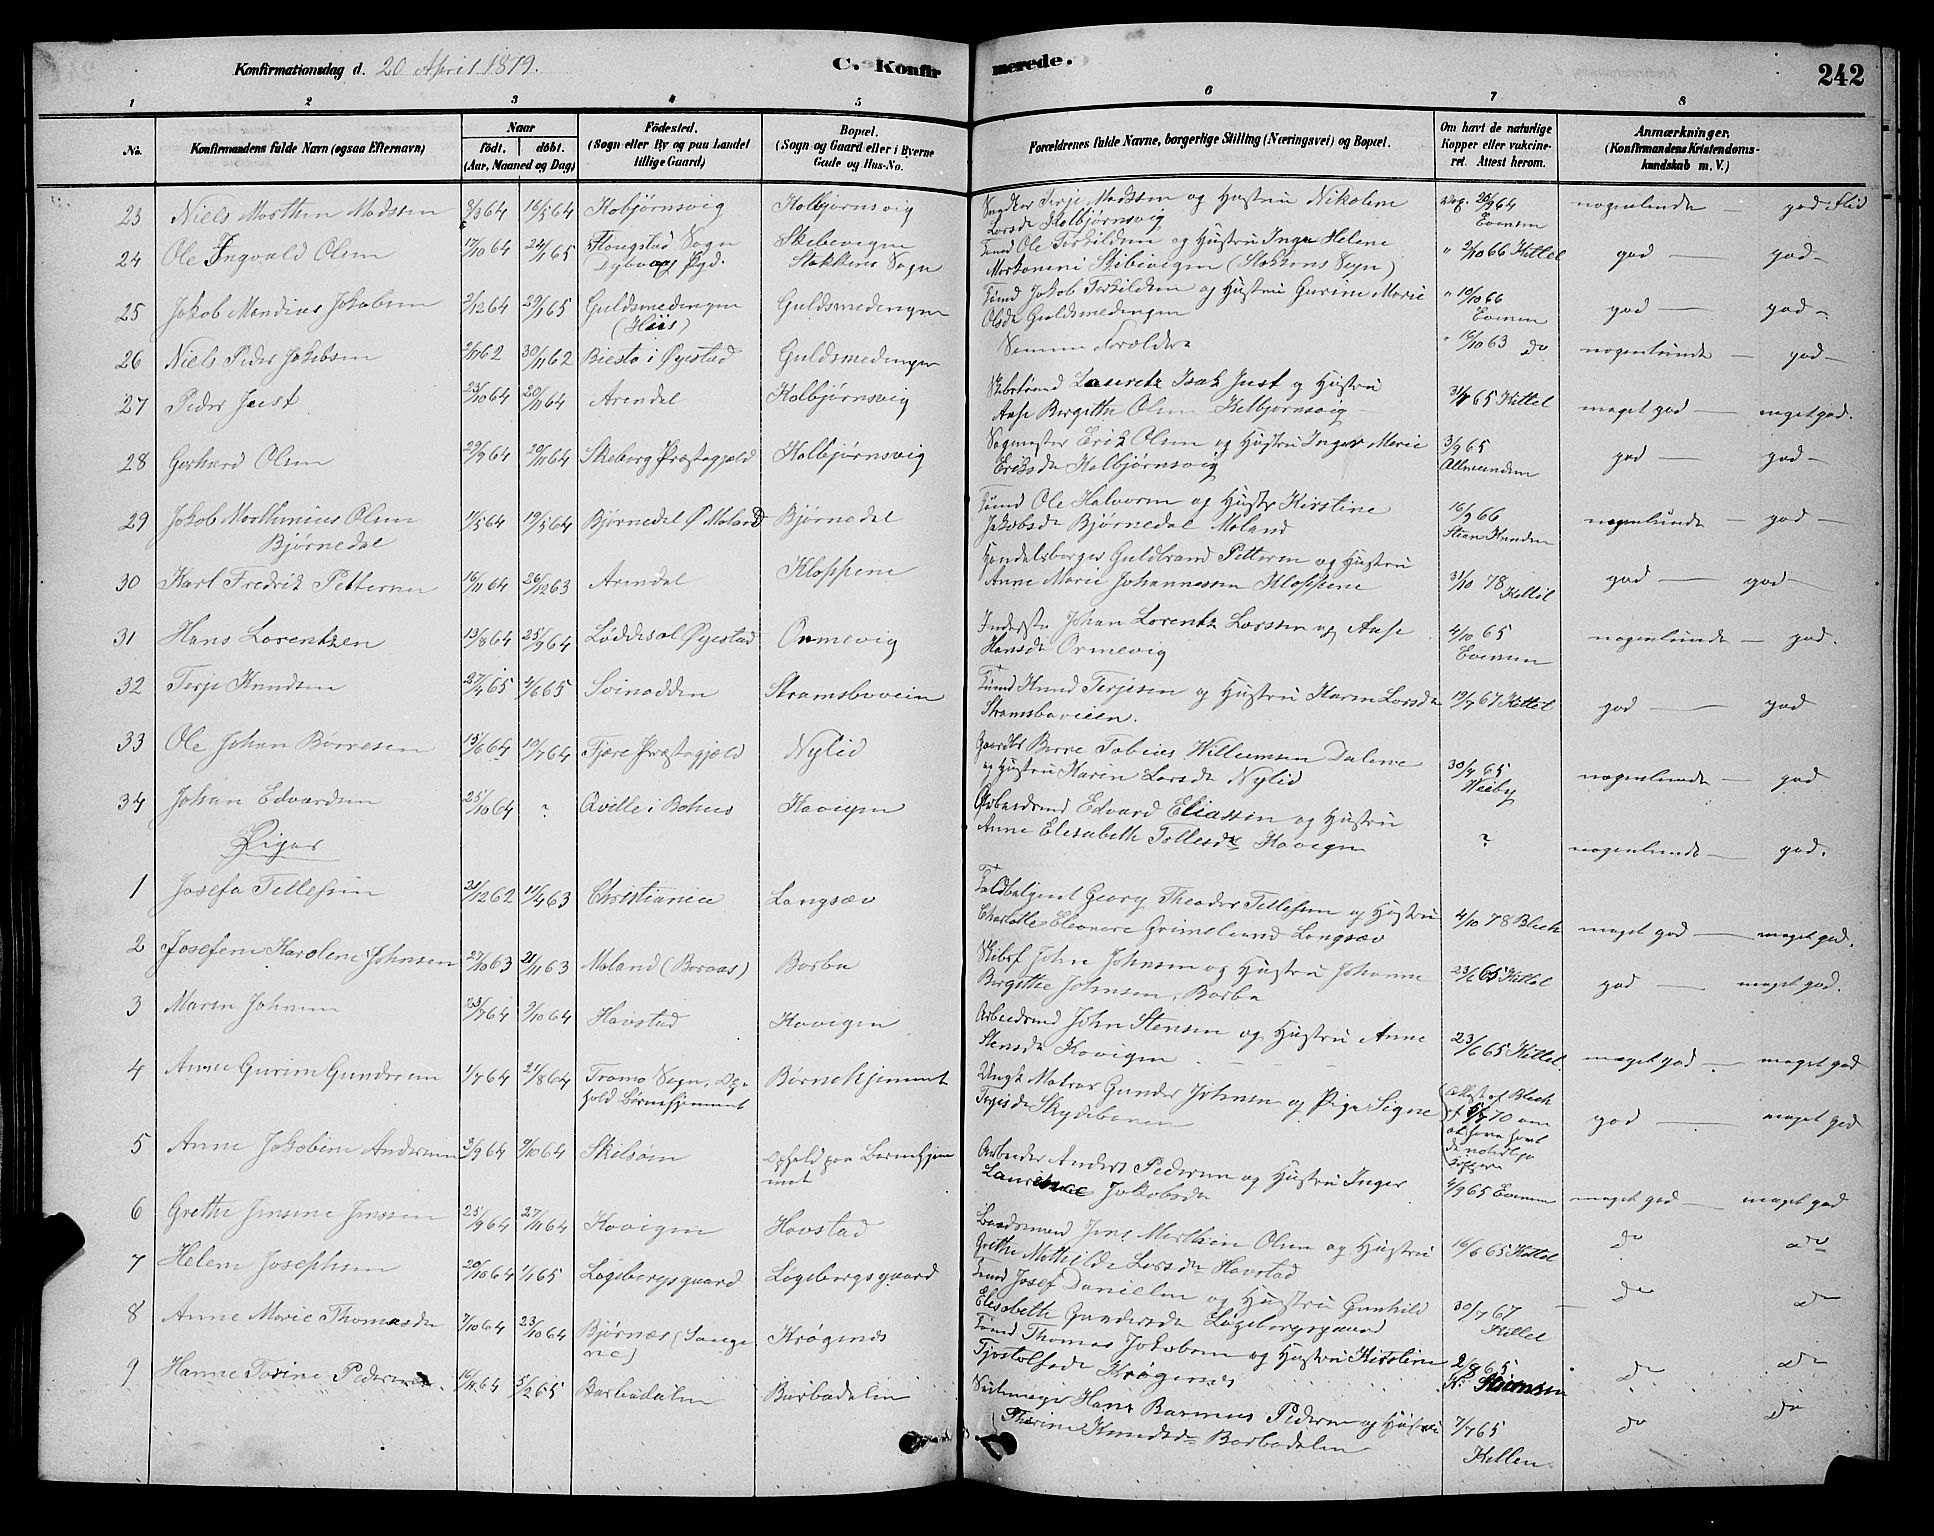 Konfirmationsdag d. 20 April 1879.
C. Konfirmerede.
242
1 2 3 4 5 6 7 8
No. Konfirmandens fulde Navn (ogsaa Efternavn)
Naar
født. døbt.
(Aar, Maaned og Dag)
Fødested.
(Sogn eller By og paa Landet
tillige Gaard)
Bopæl.
(Sogn og Gaard eller i Byerne
Gade og Hus-No.
Forældrenes fulde Navne, borgerlige Stilling (Næringsvei) og Bopæl.
Om havt de naturlige
Kopper eller vakcineret. Attest herom.
Anmærkninger.
(Konfirmandens Kristendomskundskab m. V.)
23 Niels Morthen Madssen 8/3 64 16/5 64 Kobjørnsvig Kolbjørnsvig
Terje Madssen og Hustru Nikoline
Larsdr Kolbjørnsvig
64 Evensen nogenlunde — god Flid
24 Ole Ingvald Olsen 17/10 64 24/1 65 Flangstad Sogn
Dybvaag Pgd. Skebevigen
Stokkens Sogn
Tømd Ole Terkildsen og Hustru Inger Helene
Skibevigen (Stokkens Sogn)
" 2/10 66 Kittel god — god —
25 Jakob Mandius Jakobsen 2/12 64 29/1 65 Guldsmedengen
(Hiis) Guldsmedengen
Tømd Jakob Terkildsen og Hustru Gurine Marie
Olsdr Guldsmedengen
" 10/10 66
Evensen god — god —
26 Niels Peder Jakobsen 2/11 62 30/11 62 Biesto i Øyestad Guldsmedengen
Samme Forældre
" 16/10 63 do nogenlunde — god —
27 Peder Just 23/10 64 20/11 64 Arendal Kolbjørnsvig
Skibstømd Lauretz Isak Just og Hustru
Aase Bergithe Olsen Kolbjørnsvig
65 Kittel meget god — meget god.
28 Gerhard Olsen 29/9 64 20/11 64 Skeberg Præstegjæld Kolbjørnsvig
Sagmester Erik Olsen og Hustru Inger Marie
Eriksdr Kolbjørnsvig
3/9 65
god — god —
29 Jakob Morthinius Olsen
Bjørnedal 11/5 64 19/5 64 Bjørnedal Ø Moland Bjørnedal
Tømd Ole Halvorsen og Hustr Kirstine
Jakobsdr Bjørnedal Moland
16/9 66
Stian Knudsen nogenlunde — god —
30 Karl Fredrik Pettersen 16/11 64 26/12 63 Arendal Kloppene
Handelsborger Guldbrand Pettersen og Hustru
Anne Marie Johannessen Kloppene
31/10 78
Kittel god — god —
31 Hans Lorentzen 13/8 64 25/9 64 Løddesøl Øyestad Ormevig
Inderst Johan Lorentz Larssen og Aase
Hansdr Ormevig
4/10 65
Evensen nogenlunde — god.
32 Terje Knudsen 27/4 65 4/6 65 Svinodden Strømsboveien
Tømd Knud Terjesen og Hustru Karen Larsdr
Strømsboveien.
19/7 67 Kittel god — god
33 Ole Johan Børresen 15/6 64 10/7 64 Fjære Præstegjæld Nylid
Børre Tobias Willumsen Dalene
og Hustru Karen Larsdr Nylid
30/7 65
nogenlunde — god
34 Johan Edvardsen 25/10 64 ? Qville i Bohus Havigen
Arbeidsmd Edvard Eliassen og Hustru
Anne Elesabeth Tollesdr Havigen
? nogenlunde — god.
Piger
1 Josefa Tellefsen 31/12 62 11/4 63 Christiania Langsæv
Toldbetjent Georg Theodor Tellefsen og Hustru
Charlotte Eleonore Grimelund Langsæv
4/10 78 Blich meget god — meget god.
2 Josefine Karoline Johnsen 27/10 63 21/11 63 Moland (Boraas) Barbu
Skibsf John Johnsen og Hustru Johanne
Bergithe Johnsen, Barbu
23/6 65 Kittel god — meget god.
3 Maren Johnsen 23/7 64 9/10 64 Havstad Havigen
Arbeidsmd John Stensen og Hustru Anne
Stensdr Havigen
23/6 65 Kittel meget god — meget god
4 Anne Gurine Gundersen 1/7 64 21/8 64 Tromø Sogn, Op-
hold Børnehjemmet Børnehjemmet
Ungk Matros Gunder Johnsen og Pige Signe
Terjesdr Skydebanen
Attest af Blich
god — meget god
5 Anne Jakobine Andersen 3/9 64 9/10 64 Skilsøen Ophold paa Børnehjem
met
Arbeider Anders Pedersen og Hustru Inger
Jakobsdr
4/9 65 Evensen meget god — meget god
6 Grethe Jensine Jenssen 25/9 64 27/11 64 Havigen Havstad
Baadsmand Jens Morthen Olsen og Hustru
Grethe Mathilde Larsdr Havstad
16/6 65 Kittel do do
7 Helene Josephsen 20/10 64 1/1 65 Løgebergsgaard Løgebergsgaard
Tømd Josef Danielsen og Hustru Gunhild
Elisabeth Gundersdr Løgebergsgaard
30/7 67
Kittel do do
8 Anne Marie Thomasdr 7/10 64 23/10 64 Bjørnæs (Sange
ne) Krøgenæs
Tømd Thomas Jakobsen og Hustru Kirstine
Tjostolfsdr Krøgenæs
65
do do
9 Hanne Torine Pedersen 16/11 64 5/2 65 Barbudalen Barbudalen
Hans Rasmus Pedersen og Hustru
Thorine Knudsdr Barbodalen
7/7 65
Kittel do do